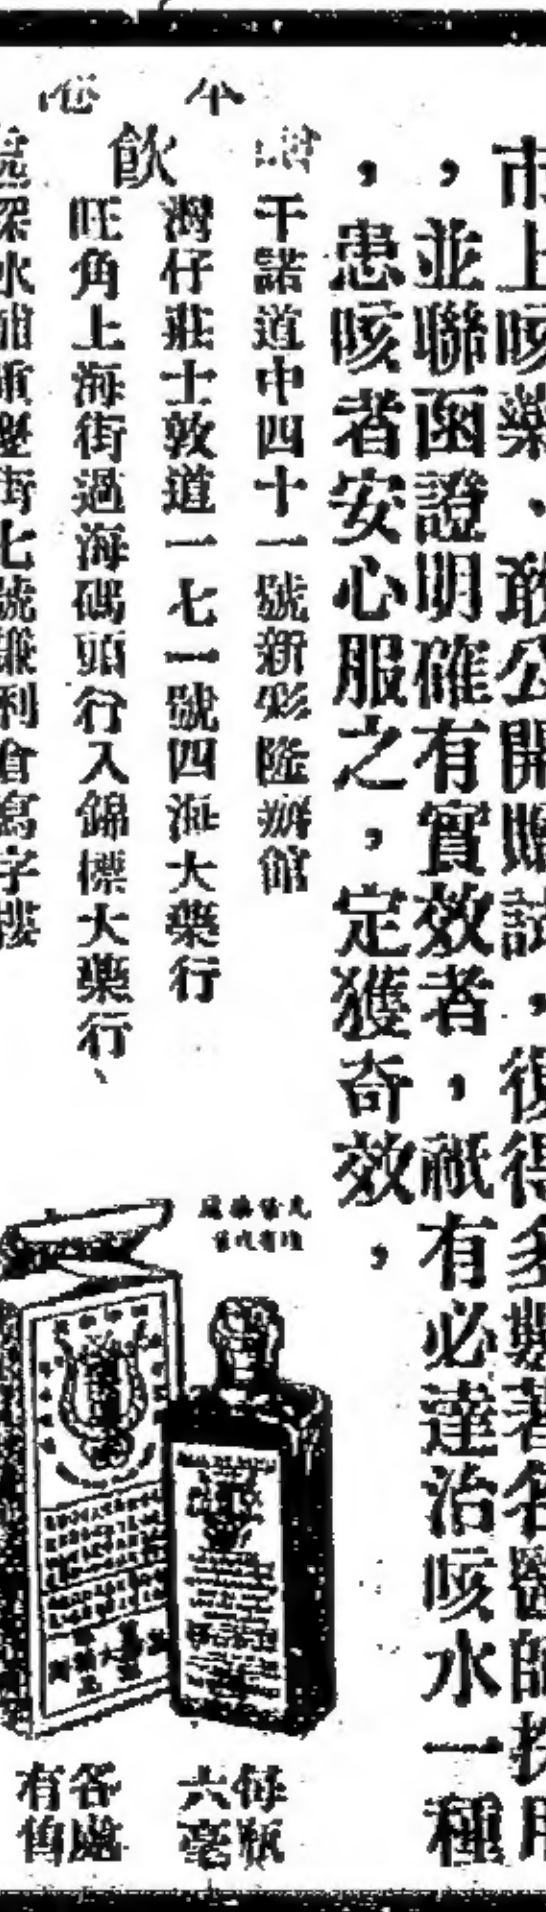 市上咳藥、敢公開贈試，復得多數著名醫師採用
，並聯函證明確有實效者，祇有必達治咳水一種
，患咳者安心服之，定獲奇效，
干諾道中四十一號新彩隆辦館
灣仔莊士敦道一七一號四海大藥行
飲
旺角上海街過海碼頭行入錦標大藥行、
深水埔 街七號謙利倉寫字樓
每瓶
六毫
各處
有售